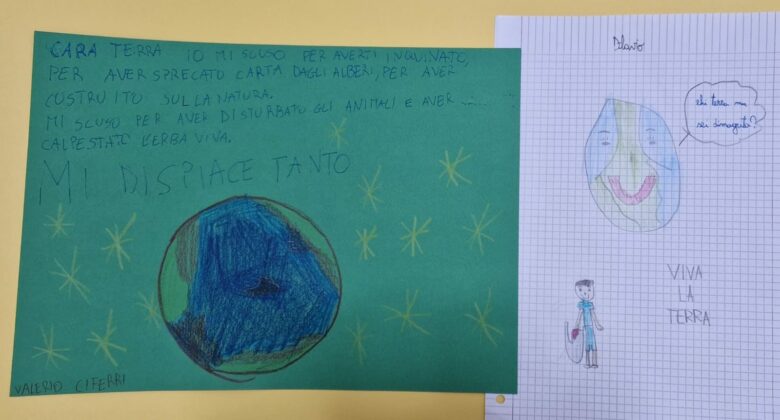 CARA TERRA IO MI SCUSO PER AVERTI INQUINATO,
PER AVER SPRECATO CARTA DAGLI ALBERI, PER AVER
COSTRUITO SULLA NATURA.
MI SCUSO PER AVER DISTURBATO GLI ANIMALI E AVER ......
CALPESTATO L'ERBA VIVA.
MI DISPIACE TANTO
VALERIO CIFERRI
Flavio
ehi terra ma
sei dimagrita?
VIVA
LA
TERRA